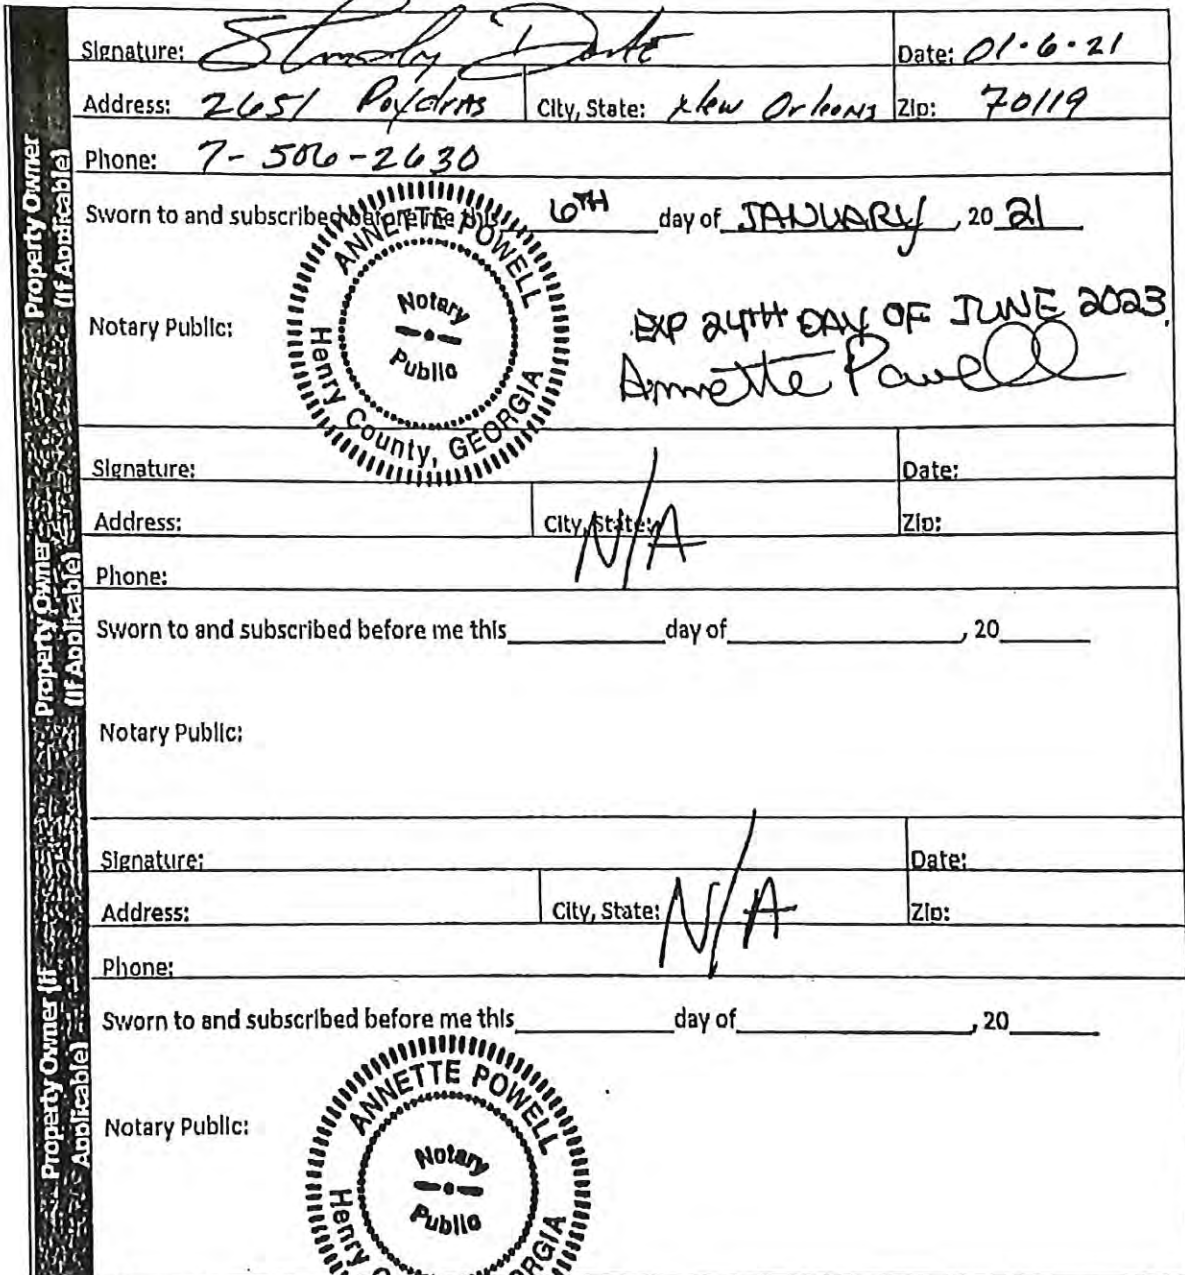 Property Owner
(If Applicable)
Signature:
Date: 01·6·21
Address: 2651 Poydras City, State: New Orleans Zip: 70119
Phone: 7-506-2630
Sworn to and subscribed before me this 6TH day of JANUARY, 20 21
ANNETTE POWELL
Notary
Public
Henry County, GEORGIA
Notary Public:
EXP 24TH DAY OF JUNE 2023
Annette Powell
Property Owner
(If Applicable)
Signature: Date:
Address: City, State: Zip:
N/A
Phone:
Sworn to and subscribed before me this day of , 20
Notary Public:
Property Owner (If
Applicable)
Signature: Date:
Address: City, State: N/A Zip:
Phone:
Sworn to and subscribed before me this day of , 20
Notary Public:
ANNETTE POWELL
Notary
Public
Henry